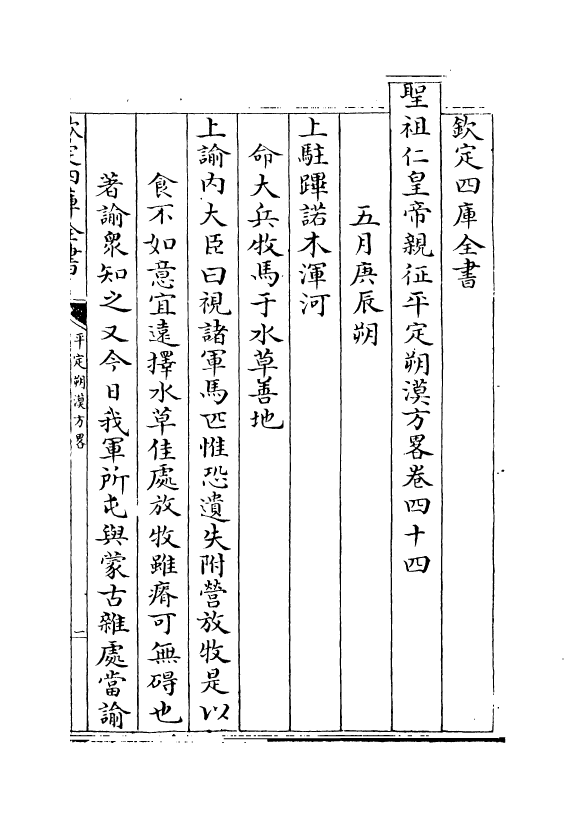 欽定四庫全書
聖祖仁皇帝親征平定朔漠方畧卷四十四
五月庚辰朔
上駐蹕諾木渾河
命大兵牧馬于水草善地
上諭內大臣曰視諸軍馬匹惟恐遺失附營放牧是以
食不如意宜遠擇水草佳處放牧雖瘠可無碍也
著諭衆知之又今日我軍所屯與蒙古雜處當諭
欽定四庫全書
平定朔漠方畧
一